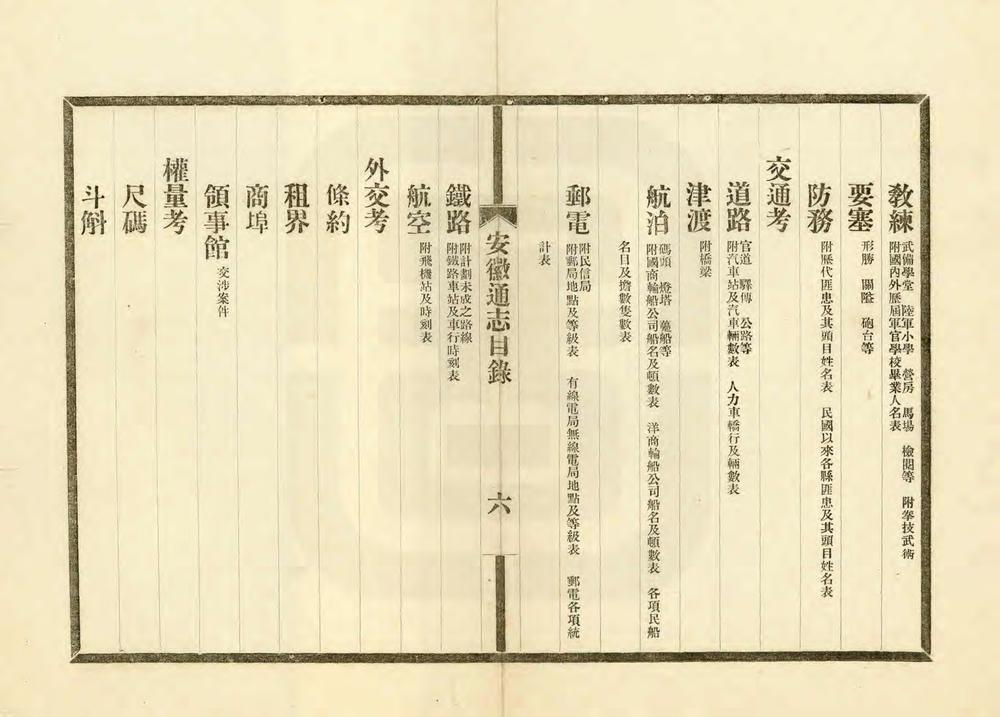 教練 武備學堂 陸軍小學 營房 馬場 檢閱等 附拳技武術
附國內外歷屆軍官學校畢業人名表
要塞 形勝 關隘 砲台等
防務 附歷代匪患及其頭目姓名表 民國以來各縣匪患及其頭目姓名表
交通考
道路 官道 驛傳 公路等
附汽車站及汽車輛數表 人力車轎行及輛數表
津渡 附橋梁
航泊 碼頭 燈塔 躉船等
附國商輪船公司船名及頓數表 洋商輪船公司船名及頓數表 各項民船
名目及擔數隻數表
郵電 附民信局
附郵局地點及等級表 有線電局無線電局地點及等級表 郵電各項統
計表
安徽通志目錄
六
鐵路 附計劃未成之路線
附鐵路車站及車行時刻表
航空 附飛機站及時刻表
外交考
條約
租界
商埠
領事館 交涉案件
權量考
尺碼
斗斛